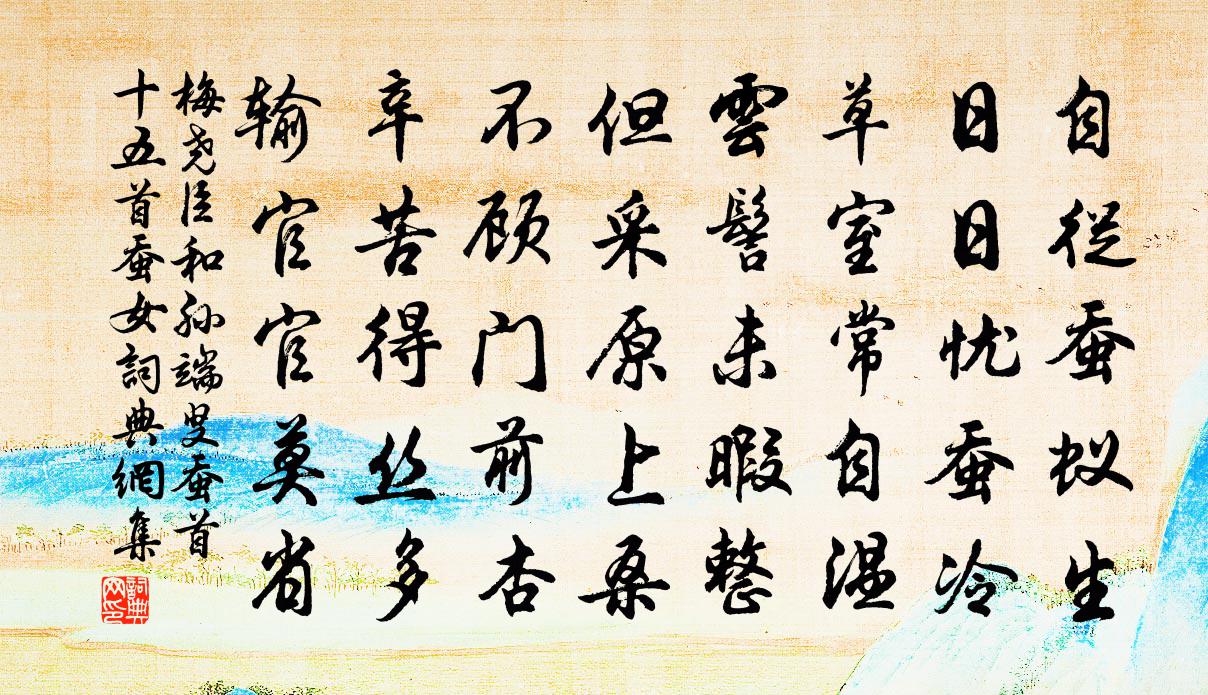 自從蚕蚁生
日日忧蚕冷
草室常自温
雲髻未暇整
但采原上桑
不顾门前杏
辛苦得丝多
输官官莫省
梅尧臣和孙端叟蚕首
十五首蚕女詞典網集
詞典
网印